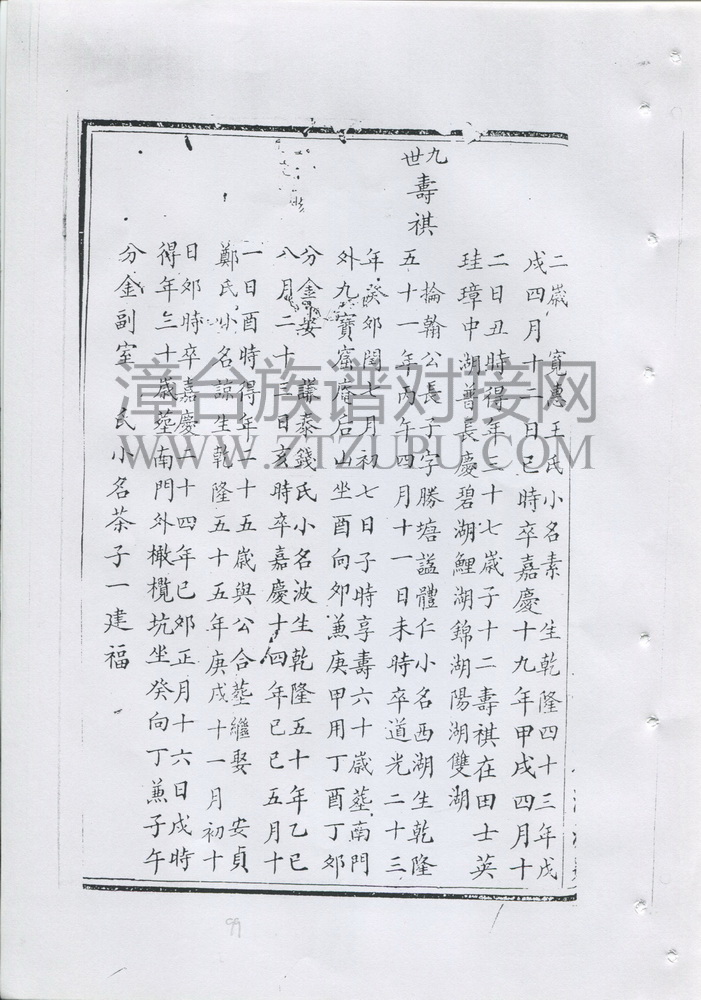 二歲　寬惠王氏小名素　生乾隆四十三年戊
戌四月十二日巳時卒嘉慶十九年甲戌四月十
二日丑時得年三十七歲子十二壽祺在田士英
珪璋中湖普長慶碧湖鯉湖錦湖陽湖雙湖
九世
壽祺
掄翰公長子字勝塘諡體仁小名西湖生乾隆
五十一年丙午四月十一日未時卒道光二十三
年癸卯閏七月初七日子時享壽六十歲塟南門
外九寶窟庵右山坐酉向卯兼庚甲用丁酉丁卯
分金娶　謙泰錢氏小名波生乾隆五十年乙巳
八月二十三日亥時卒嘉慶十四年己巳五月十
一日酉時得年二十五歲與公合塟繼娶　安貞
鄭氏小名諒生乾隆五十五年庚戌十一月初十
日卯時卒嘉慶二十四年己卯正月十六日戌時
得年三十歲塟南門外橄欖坑坐癸向丁兼子午
分金副室　氏小名茶子一建福
漳台族谱对接网
WWW.ZTZUPU.COM
99